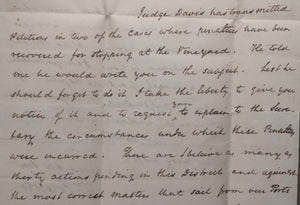 Judge Davis has transmitted
Petitions in two of the cases where penalties have been
recovered for stopping at the Vineyard. He told
me he would write you on the subject. Lest he
should forget to do it I take the liberty to give you
notice of it and to request you to explain to the Secre-
tary the circumstances under which these Penalties
were incurred. There are I believe as many as
thirty actions pending in this District and against
the most correct masters that sail from our Ports